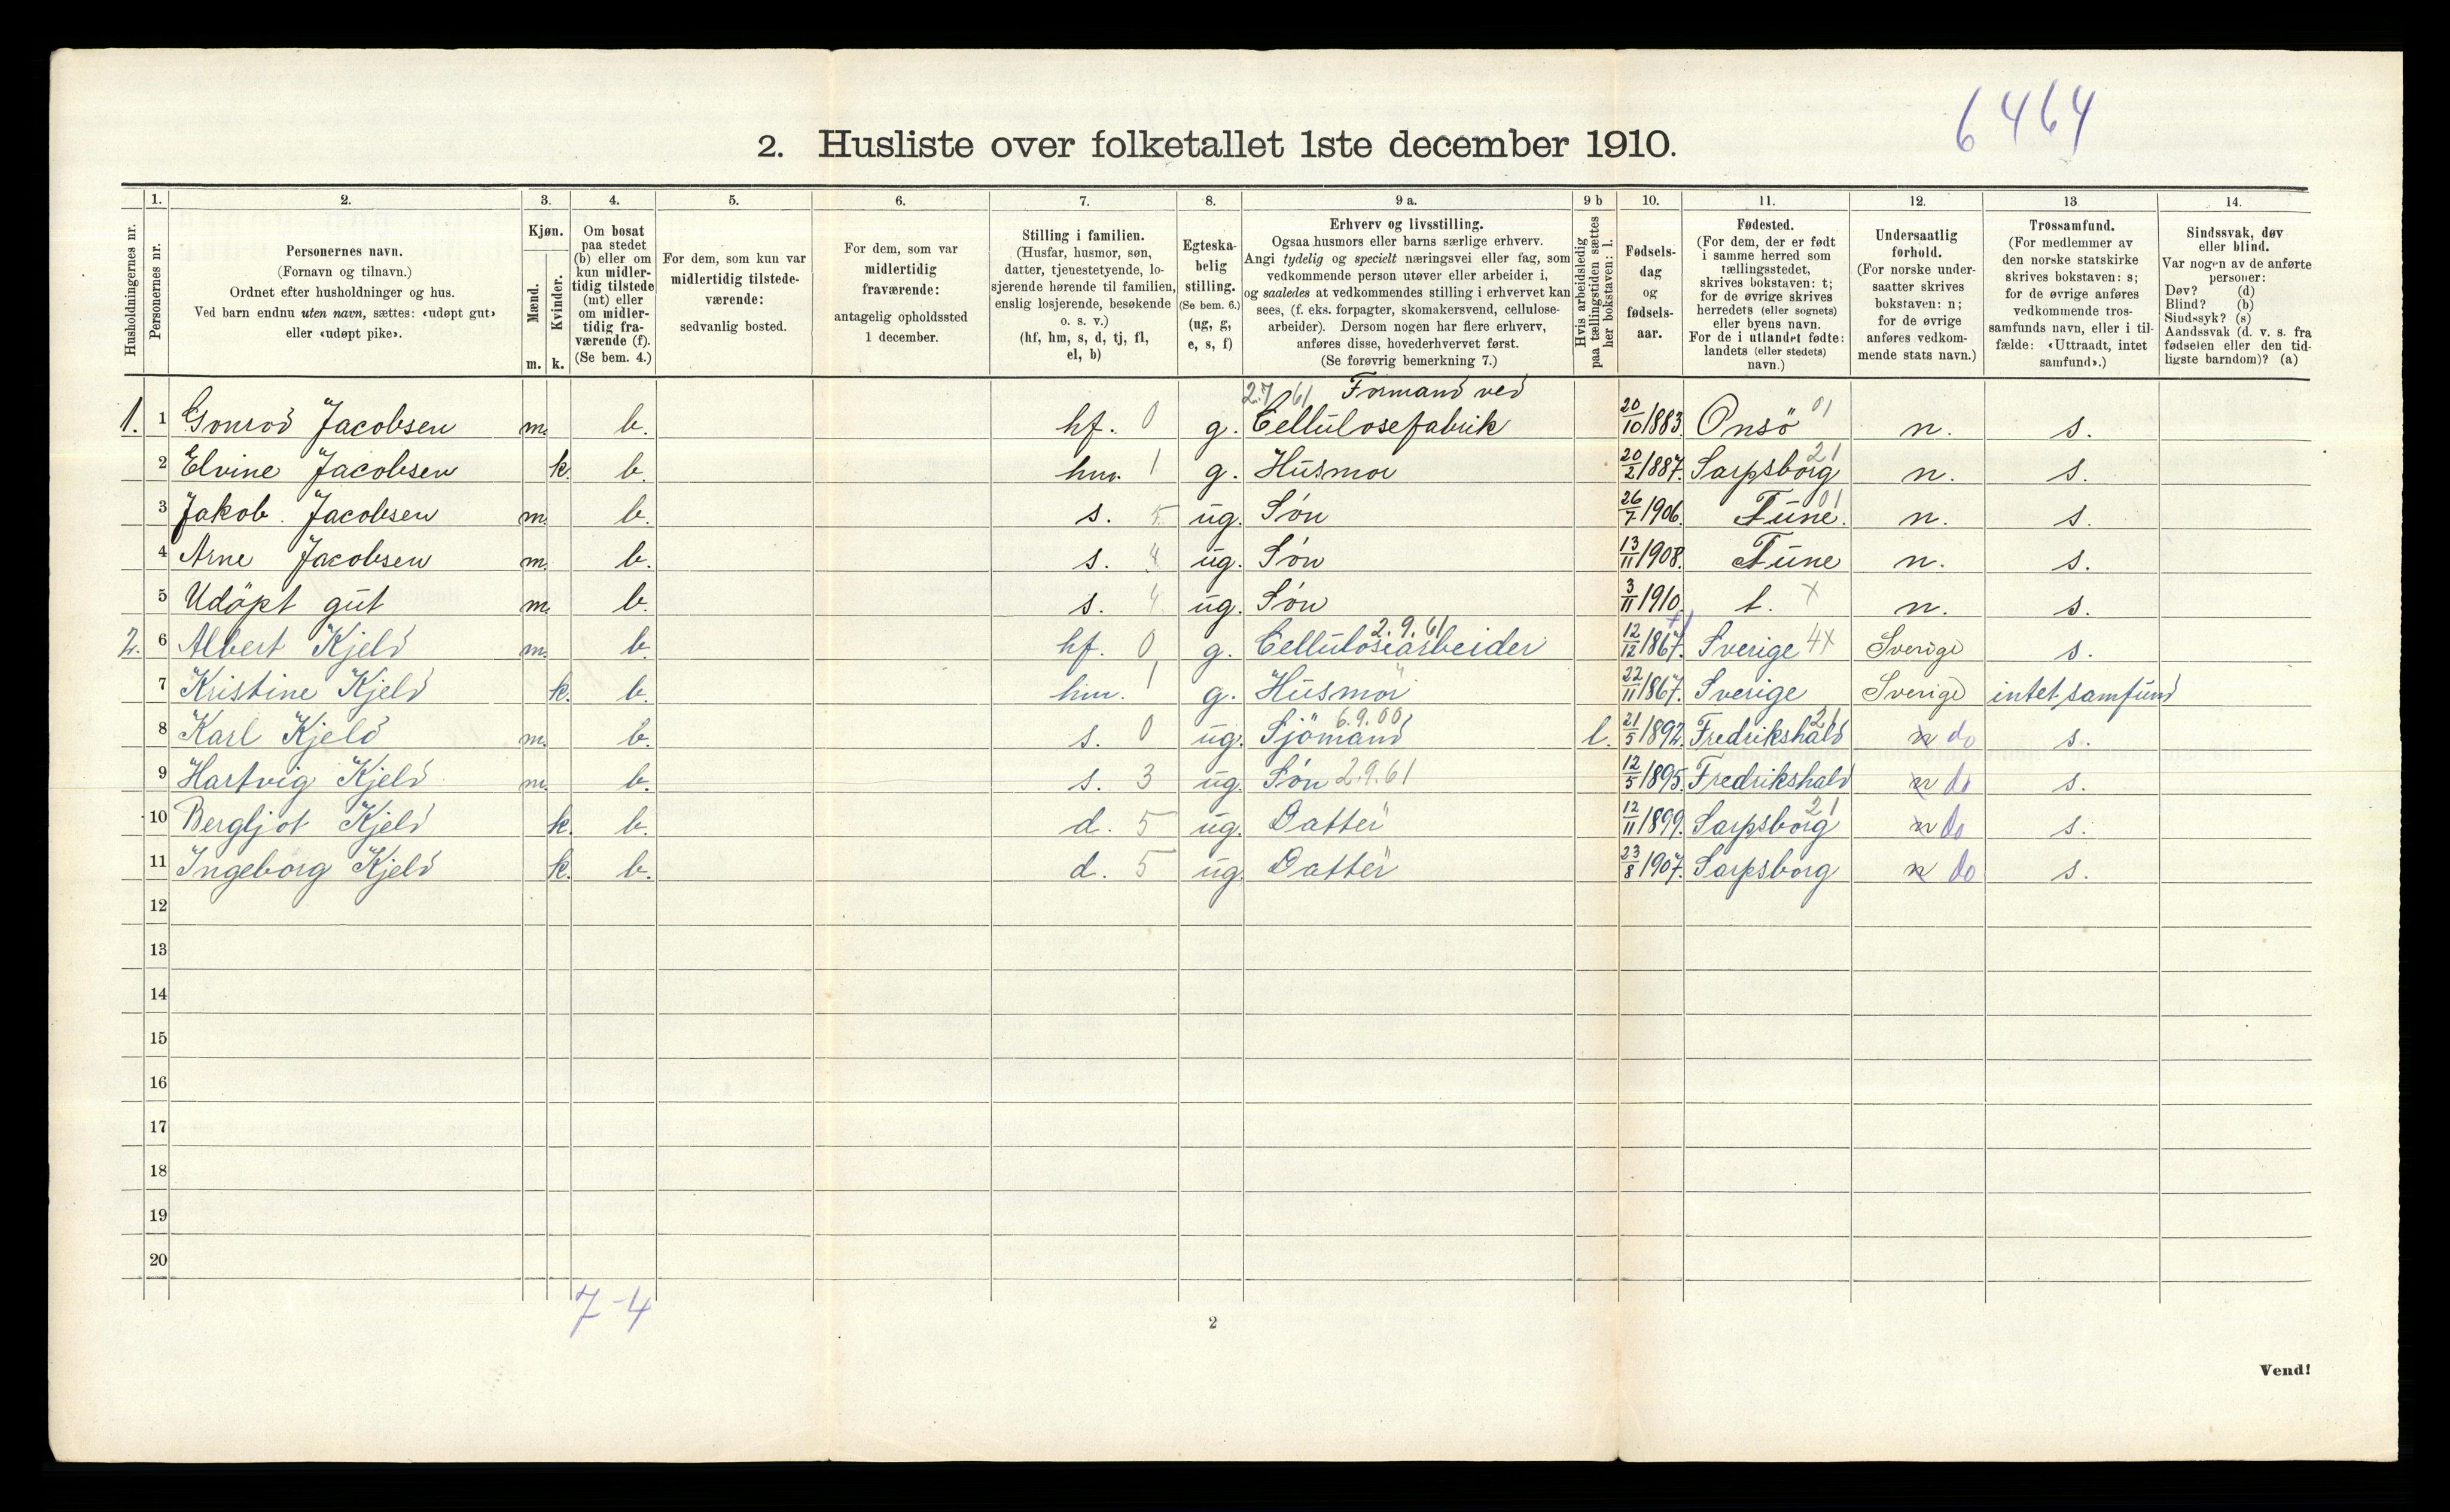 6464
2. Husliste over folketallet 1ste december 1910.
Husholdningernes nr.
1.
Personernes nr.
2.
Personernes navn.
(Fornavn og tilnavn.)
Ordnet efter husholdninger og hus.
Ved barn endnu uten navn, sættes: «udøpt gut»
eller «udøpt pike».
3.
Kjøn.
Mænd.
Kvinder.
m. k.
4.
Om bosat
paa stedet
(b) eller om
kun midler-
tidig tilstede
(mt) eller
om midler-
tidig fra-
værende (f).
(Se bem. 4.)
5.
For dem, som kun var
midlertidig tilstede-
værende:
sedvanlig bosted.
6.
For dem, som var
midlertidig
fraværende:
antagelig opholdssted
1 december.
7.
Stilling i familien.
(Husfar, husmor, søn,
datter, tjenestetyende, lo-
sjerende hørende til familien,
enslig losjerende, besøkende
o. s. v.)
(hf, hm, s, d, tj, fl,
el, b)
8.
Egteska-
belig
stilling.
(Se bem. 6.)
(ug, g,
e, s, f)
9 a.
Erhverv og livsstilling.
Ogsaa husmors eller barns særlige erhverv.
Angi tydelig og specielt næringsvei eller fag, som
vedkommende person utøver eller arbeider i,
og saaledes at vedkommendes stilling i erhvervet kan
sees, (f. eks. forpagter, skomakersvend, cellulose-
arbeider). Dersom nogen har flere erhverv,
anføres disse, hovederhvervet først.
(Se forøvrig bemerkning 7.)
9 b
Hvis arbeidsledig
paa tællingstiden sættes
her bokstaven: l.
10.
Fødsels-
dag
og
fødsels-
aar.
11.
Fødested.
(For dem, der er født
i samme herred som
tællingsstedet,
skrives bokstaven: t;
for de øvrige skrives
herredets (eller sognets)
eller byens navn.
For de i utlandet fødte:
landets (eller stedets)
navn.)
12.
Undersaatlig
forhold.
(For norske under-
saatter skrives
bokstaven: n;
for de øvrige
anføres vedkom-
mende stats navn.)
13
Trossamfund.
(For medlemmer av
den norske statskirke
skrives bokstaven: s;
for de øvrige anføres
vedkommende tros-
samfunds navn, eller i til-
fælde: «Uttraadt, intet
samfund».)
14.
Sindssvak, døv
eller blind.
Var nogen av de anførte
personer:
Døv? (d)
Blind? (b)
Sindssyk? (s)
Aandssvak (d. v. s. fra
fødselen eller den tid-
ligste barndom)? (a)
27 61 Formand ved
1. 1 Gonrod Jacobsen m. b. hf. 0 g. Cellulosefabrik 20/10 1883. Onsö 01 n. s.
2 Elvine Jacobsen k. b. hm. 1 g. Husmor 20/2 1887. Sarpsborg 21 n. s.
3 Jakob. Jacobsen m. b. s. 5 ug. Søn 26/7 1906. Tune. 01 n. s.
4 Arne Jacobsen m. b. s. 4 ug. Søn 13/11 1908. Tune n. s.
5 Udöpt gut m. b. s. 4. ug. Søn 3/11 1910. t. x n. s.
2. 6 Albert Kjeld m. b. hf. 0 g. Cellulosearbeider 2.9.61 12/12 1867. Sverige 4x Sverige s.
7 Kristine Kjeld k. b. hm. 1 g. Husmor 22/11 1867. Sverige Sverige intet samfund
8 Karl Kjeld m. b. s. 0 ug. Sjömand 6.9.00 l. 21/5 1892. Fredrikshald 21 n do s.
9 Hartvig Kjeld m. b. s. 3 ug. Søn 2.9.61 12/5 1895. Fredrikshald n do s.
10 Bergljot Kjeld k. b. d. 5 ug. Datter 12/11 1899. Sarpsborg 21 n do s.
11 Ingeborg Kjeld k. b. d. 5 ug. Datter 23/8 1907. Sarpsborg n do s.
12
13
14
15
16
17
18
19
20
7-4
2
Vend!